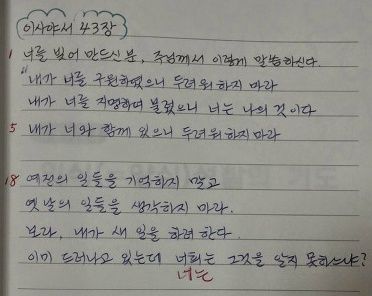 이사야서 43장
1 너를 빚어 만드신 분, 주님께서 이렇게 말씀하신다.
"내가 너를 구원하였으니 두려워하지 마라
내가 너를 지명하여 불렀으니 너는 나의 것이다
5 내가 너와 함께 있으니 두려워하지 마라
18 예전의 일들을 기억하지 말고
옛날의 일들을 생각하지 마라.
보라, 내가 새 일을 하려 한다.
이미 드러나고 있는데 너희는 그것을 알지 못하느냐?
너는